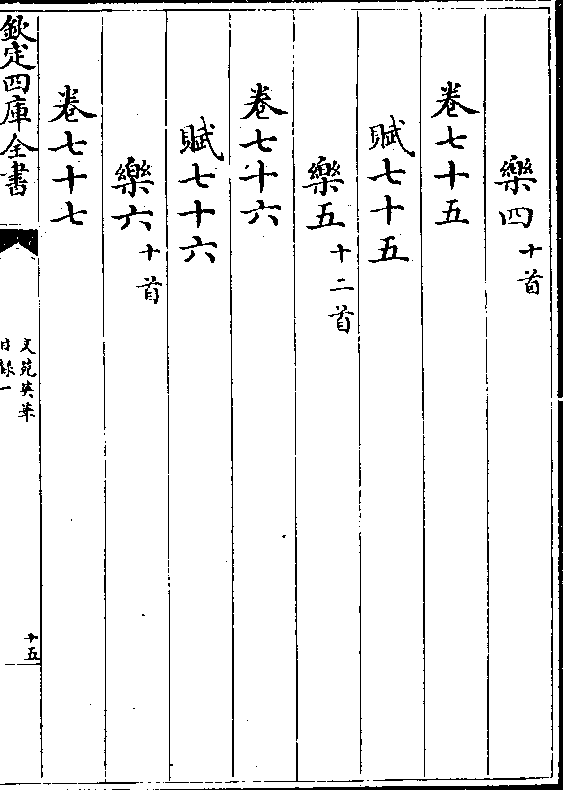 樂四十首
卷七十五
賦七十五
樂五十二首
卷七十六
賦七十六
樂六十首
卷七十七
欽定四庫全書
文苑英華
目録一
十五